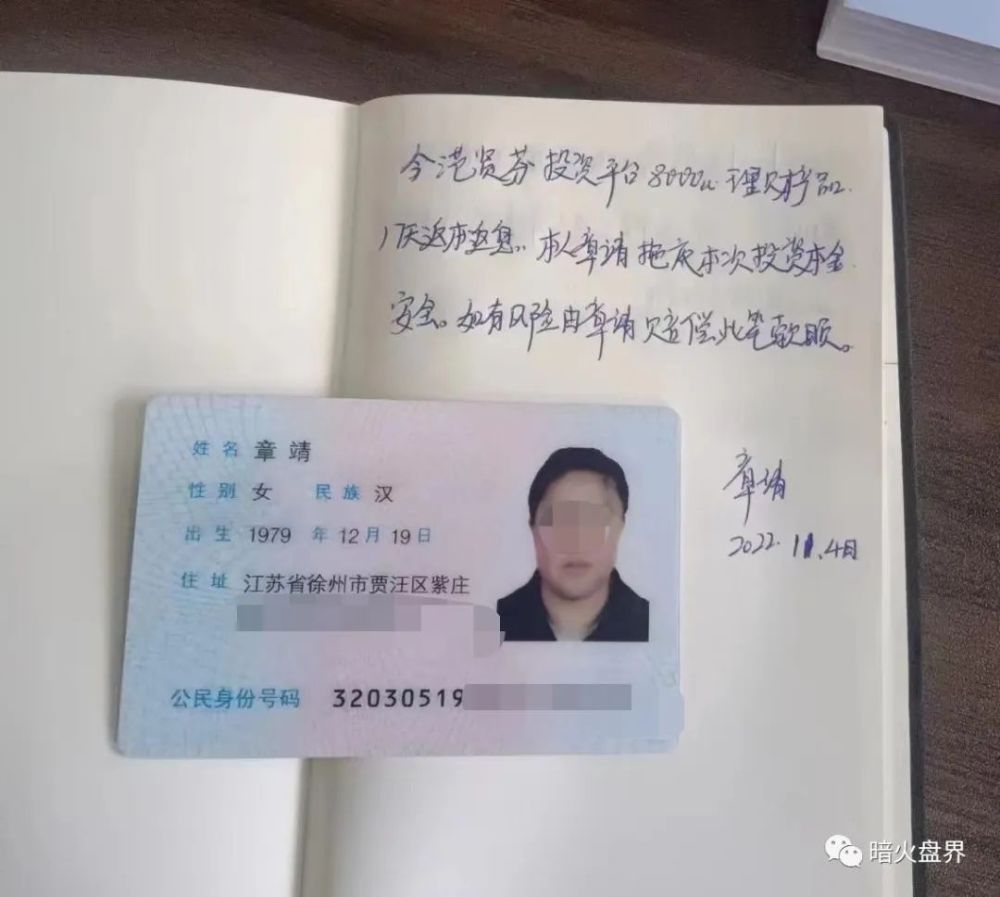 今范贤芬投资平台8000u理财产品.
1天返本返息。本人章靖拖底本次投资本金
安全。如有风险由章靖赔偿此笔款项。
章靖
2022.11.4日
姓名 章靖
性别 女 民族 汉
出生 1979 年 12 月 19 日
住址 江苏省徐州市贾汪区紫庄
公民身份号码 32030519
暗火盘界